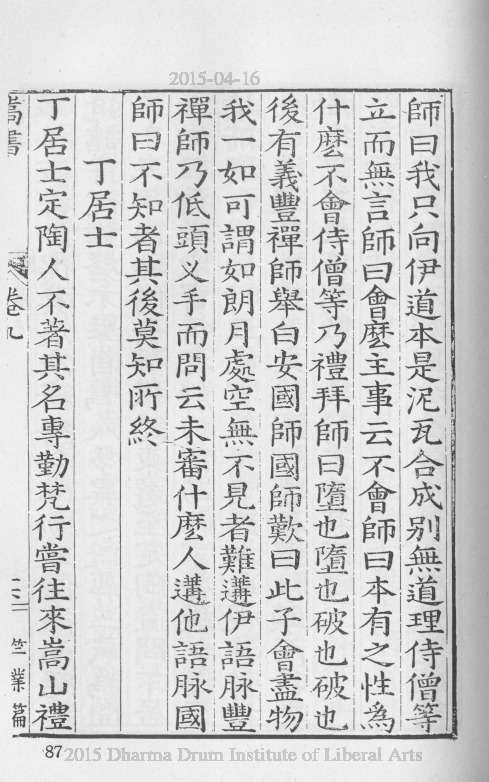 2015-04-16
師曰我只向伊道本是泥瓦合成別無道理侍僧等
立而無言師曰會麼主事云不會師曰本有之性為
什麼不會侍僧等乃禮拜師曰墮也墮也破也破也
後有義豐禪師舉白安國師國師歎曰此子會盡物
我一如可謂如朗月處空無不見者難遘伊語脉豐
禪師乃低頭义手而問云未審什麼人遘他語脉國
師曰不知者其後莫知所終
丁居士
丁居士定陶人不著其名專勤梵行嘗往來嵩山禮
嵩書 卷九 竺業篇
87
2015 Dharma Drum Institute of Liberal Arts